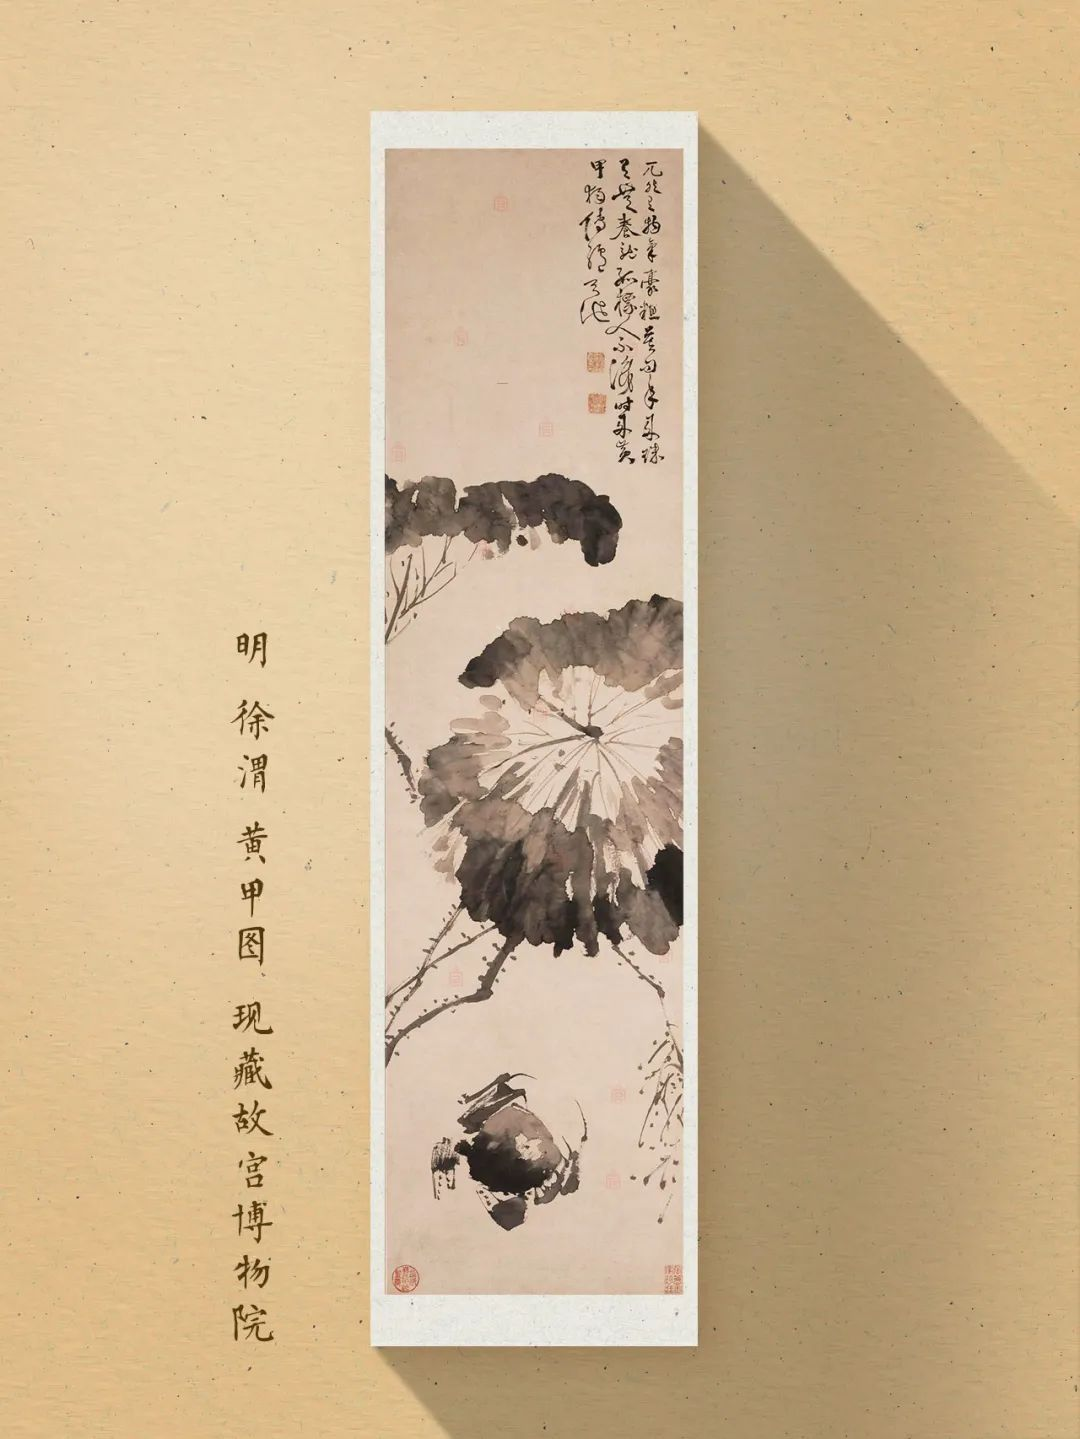 兀然有物氣豪粗莫问年来珠
有無養就孤標人不識时来黄
甲獨傳臚
天池
明 徐渭 黄甲图 现藏故宫博物院